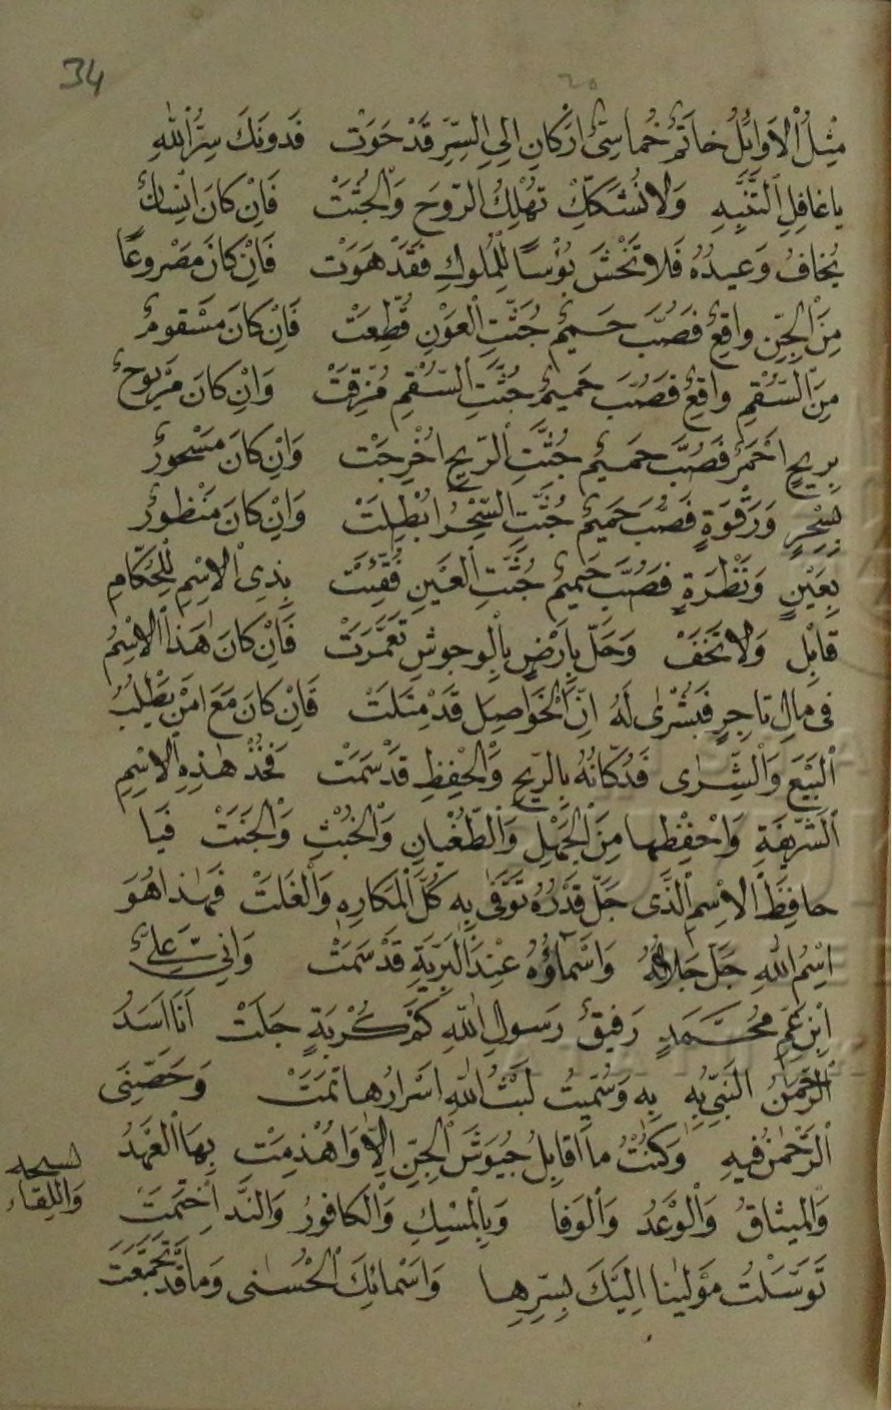 34
مِثْلُ الْاَوَائِلُ خَاتَمٌ خُمَاسِىُّ اَرْكَانِ اِلىِ السِّرِّ قَدْ حَوَتْ فَدُونَكَ سِرُّ اللهِ
يَا غَافِلِ التَّنَبُّهِ وَلَا تُشَكِّكْ تَهْلِكُ الرّوحَ وَالْجُثَّتْ فَاِنْ كَانَ اِنْسَانٌ
يُخَافُ وَعِيدُهُ فَلَا تَخْشَ بُؤْسًا لِلْمُلوُكِ فَقَدْ هَمَوَتْ فَاِنْ كَانَ مَصْرُوعًا
مِنَ الْجِنِّ وَاقِعٌ فَصُبَّ حَمِيمٌ جُثَّتِ الْعَوْنِ قُطِعَتْ فَاِنْ كَانَ مَسْقُومٌ
مِنَ السُّقْمِ وَاقِعٌ فَصُبَّ حَمِيمٌ جُثَّتِ السُّقْمِ مُزِّقَتْ وَاِنْ كَانَ مَرْيُوحٌ
بِرِيحٍ اَحْمَرٌ فَصُبَّ حَمِيمٌ جُثَّتِ الرِّيحِ اُخْرِجَتْ وَاِنْ كَانَ مَسْحُورٌ
بِسِحْرٍ وَرَقْوَةٍ فَصُبَّ حَمِيمٌ جُثَّتِ السِّحْرُ اُبْطِلَتْ وَاِنْ كَانَ مَنْظُورٌ
بِعَيْنٍ وَنَظْرَةٍ فَصُبَّ حَمِيمٌ جُثَّتِ الْعَيْنِ فُقِئَتْ بِذِى الْاِسْمِ لِلْحُكَّامِ
قَابِلْ وَلَا تَخَفْ وَحَلَّ بِاَرْضٍ بِالْوحُوشِ تَعَمَّرَتْ فَاِنْ كَانَ هٰذَا الْاِسْمُ
فى مَالِ تَاجِرٍ فَبُشْرٰى لَهُ اِنَّ الْحَوَاصِلَ قَدْ مِتَلَتْ فَاِنْ كَانَ مَعَ امْنٍ يَطْلُبُ
الْبَيْعَ وَالشِّرٰى فَدُكَّانُهُ بِالرِّبحِ وَالْحِفْظِ قَدْ سَمَتْ فَخُذْ هٰذِهِ الْاِسْمِ
الشَّرِيفَةِ وَاحْفِظْهَا مِنَ الْجَهْلِ وَالطُّغْيَانِ وَالْخُبْثِ وَالْجَنَتْ فَيَا
حَافِظَ الْاِسْمِ الَّذى جَلَّ قَدْرُهُ تَوَقّى بِهِ كُلَّ الْمَكَارِهِ وَالْغَلَتْ فَهٰذَا هُوَ
اسْمُ اللهِ جَلَّ جَلَالُهُ وَاَسْمَاؤُهُ عِنْدَ الْبَرِيَّةِ قَدْ سَمَتْ وَاِنِّى عَلِىٌّ
اِبْنِ عَمِّ مُحَمَّدٍ رَفِيقٌ رَسُولِ اللهِ كَمْ كُرْبَةٍ جَلَتْ اَنَا اَسَدُ
الرَّحْمٰنُ النَّبِيِّ بِهِ بِهِ وَسُمِّيتُ لَيْثُ اللهِ اَسْرَارُهَا تَمَتْ وَحَصَّنِى
الرَّحْمٰنُ فِيهِ وَكُنْتُ مَا اُقَابِلُ جُيُوشَ الْجِنِّ اِلَّا وَاهْذِمَتْ بِهَا الْعَهْدُ
وَالْمِيثَاقُ وَالْوَعْدُ وَالْوَفَا وَبِالْمِسْكِ وَالْكَافُورُ وَالنَّدَّ اخْتِمَتْ وَاللِّقَاءُ
تَوَسَّلْتُ مَوْلٰينَا اِلَيْكَ بِسِرِّهَا وَاَسْمَائِكَ الْحُسْنٰى وَمَا قَدْ تَجَمَّعَتْ